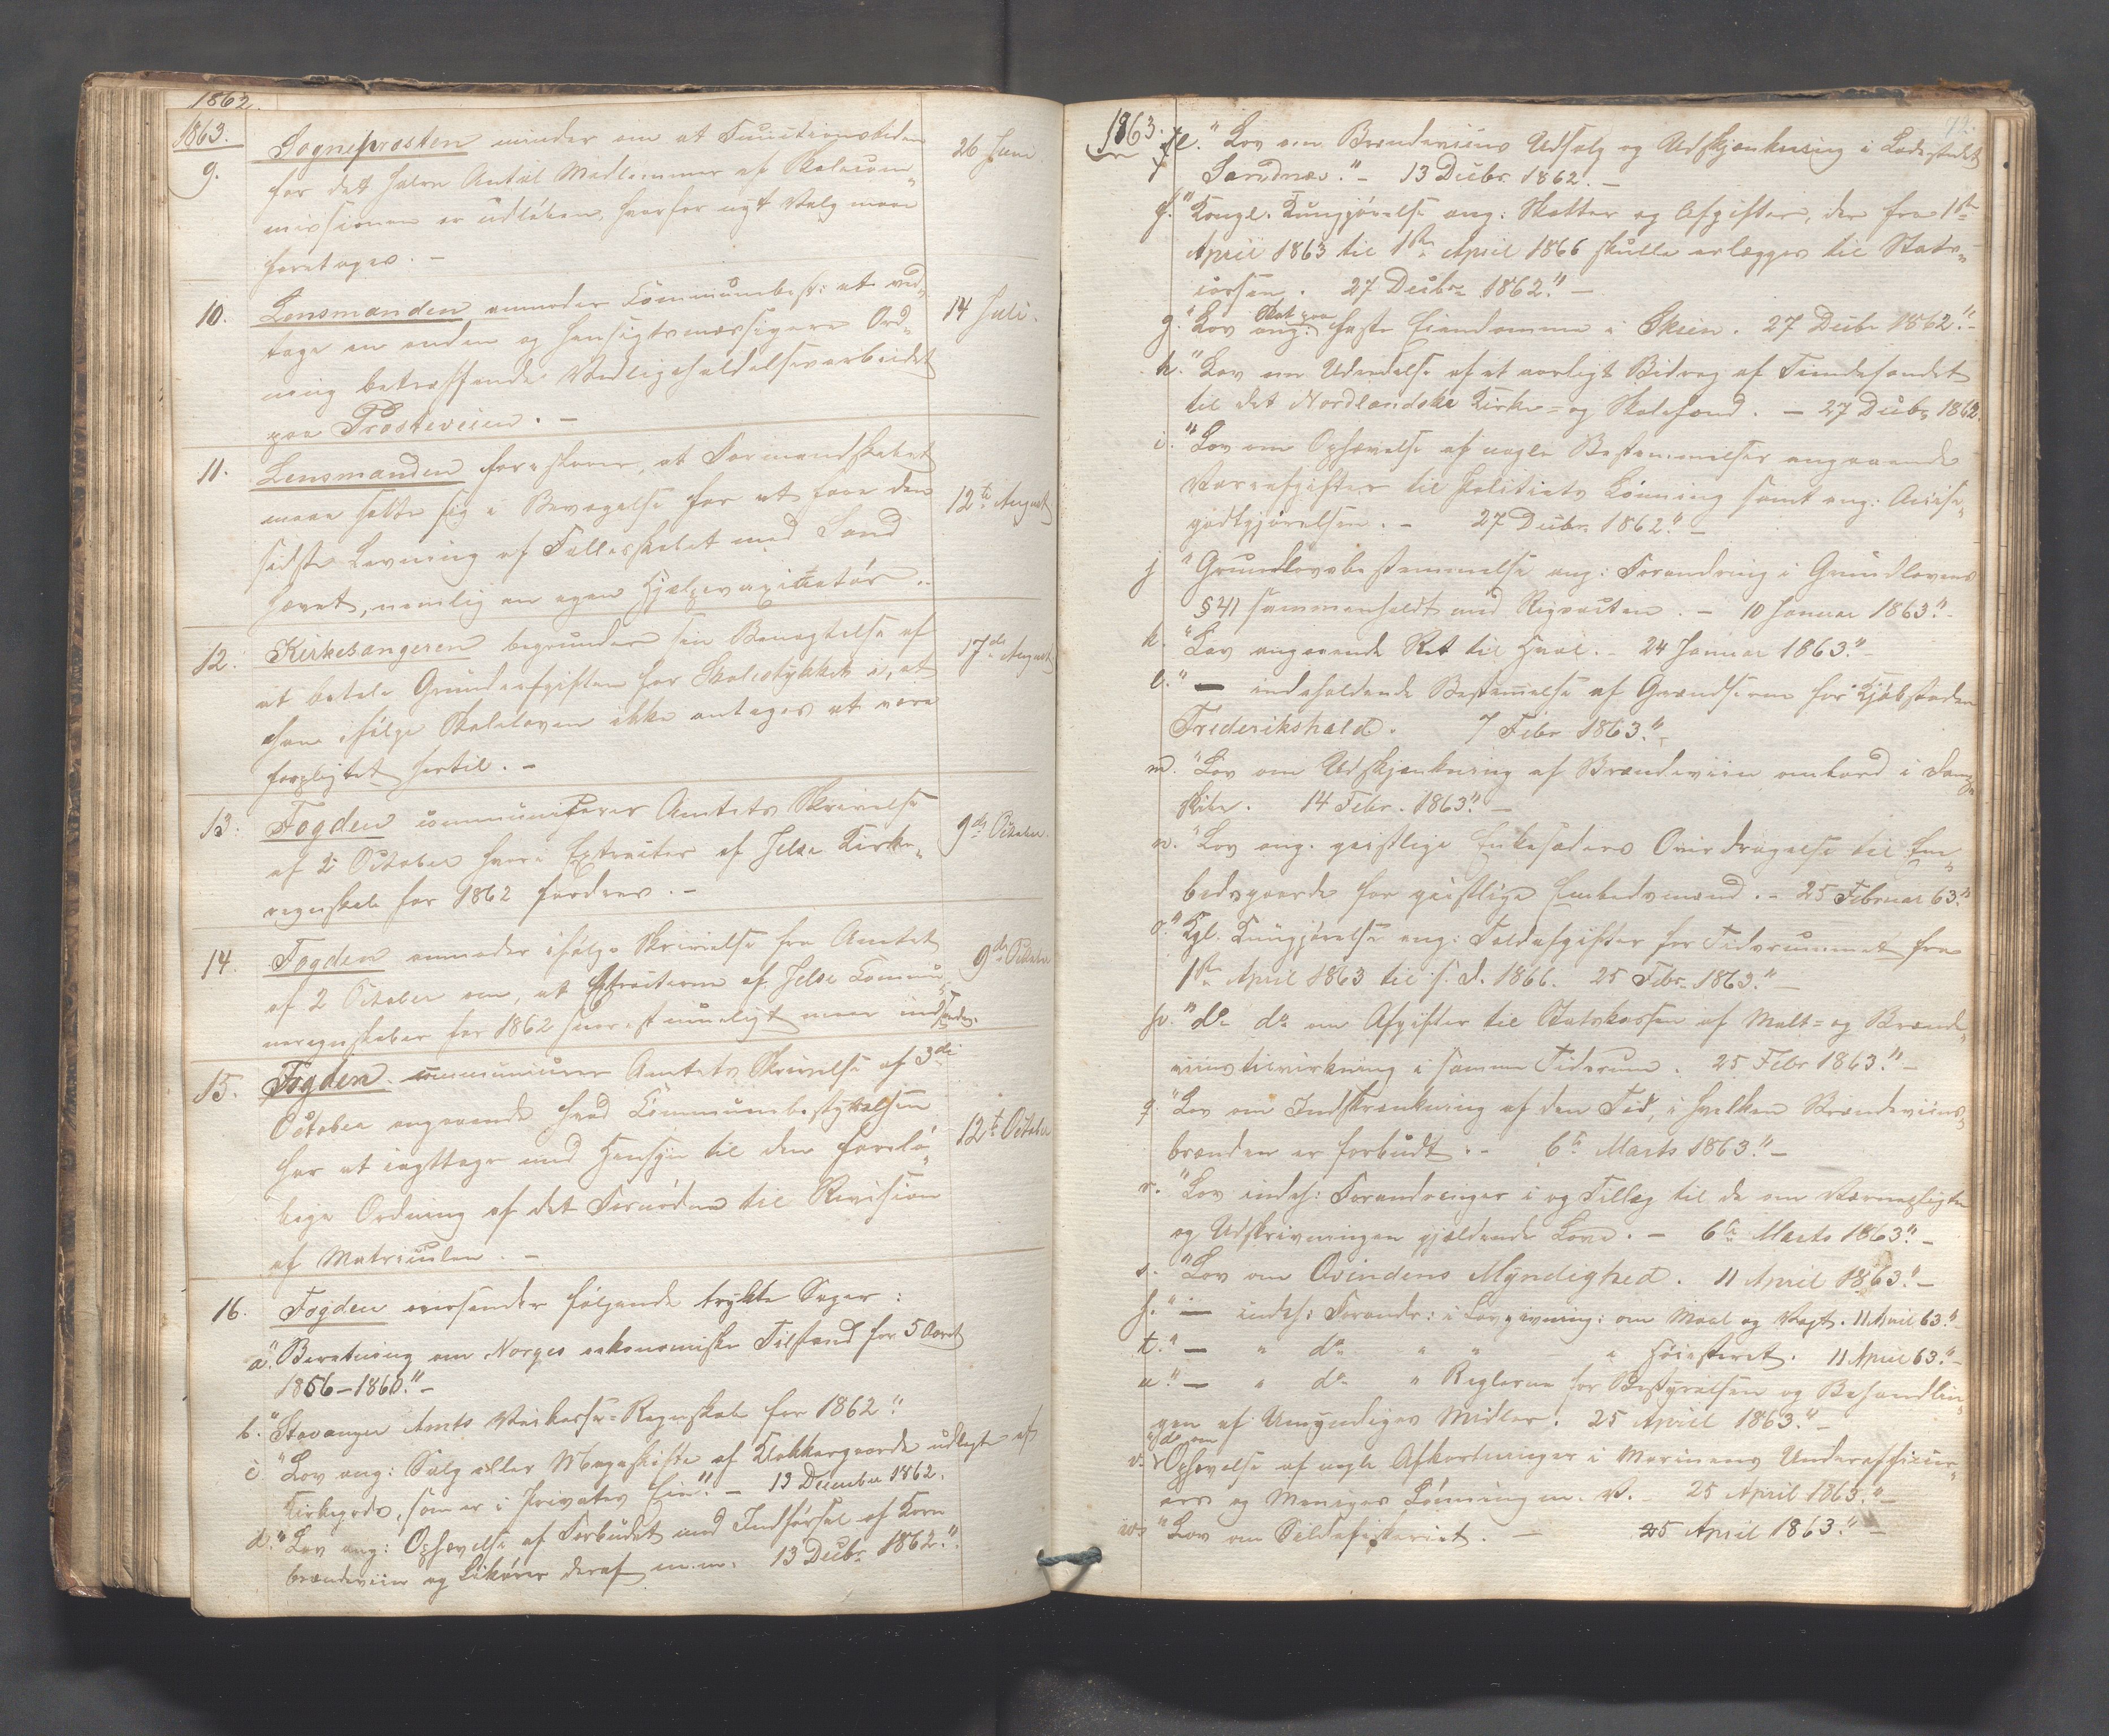 1862.
1863.
9. Sogneprosten minder om at Functionstiden 26 Juni.
for det halve Antal Medlemmer af Skolecom„
missionen er udløben, hvorfor nyt Valg maa
foretages. –
10. Lensmanden anmoder Communebest: at ved„ 14 Juli.
tage en anden og hensigtsmæssigere Ord„
ning betræffende Vedligeholdelsesarbeidet
paa Prosteveien. –
11. Lensmanden foreslaaer, at Formandskabet
maa sætte sig i Bevægelse for at faae den 12te August
sidste Levning af Fællesskabet med Sand
hævet, nemlig en egen Hjælpevaxinatør.
12. Kirkesangeren begrunder sin Benægtelse af 17de August
at betale Grundafgiften for Skolestykket i, at
han ifølge Skoleloven ikke antages at være
forpligtet hertil. –
13. Fogden communicerer Amtets Skrivelse
af 2 October hvori Extracter af Jelse Kirke„ 9de October.
regnskab for 1862 fordres. –
14. Fogden anmoder ifølge Skrivelse fra Amtet
af 2 October om, at Extracterne af Jelse Commu„ 9de October
neregnskaber for 1862 snarest mueligt maa indsendes.
15. Fogden communicerer Amtets Skrivelse af 3die
October angaaende hvad Communebestyrelsen
har at iagttage med Hensyn til den foreløb„ 12te October
bige Ordning af det Fornødne til Revision
af Matriculen. –
16. Fogden oversender følgende trykte Sager:
a. "Beretning om Norges oekonomiske Tilstand for 5 Aaret
1856–1860." –
b. "Stavanger Amts Veikasse-Regnskab for 1862."
c. "Lov ang: Salg eller Mageskifte af Klokkergaarde udlagte af
Kirkegods, som er i Privates Eie." – 13 December 1862.
d. "Lov ang: Ophævelse af Forbudet mod Indførsel af Korn
brændeviin og Likører deraf m.m. 13 Decbr 1862."
1863. 72.
e. "Lov om Brændeviins Udsalg og Udskjænkning i Ladestedet
Sandnæs." – 13 Decbr. 1862. –
f. "Kongl. Kungjørelse ang: Skatter og Afgifter, der fra 1ste
April 1863 til 1ste April 1866 skulle erlægges til Stats„
cassen. 27 Decbr 1862." –
g. "Lov ang: Skat paa faste Eiendomme i Skien. 27 Decbr 1862." –
h. "Lov om Udredelse af et aarligt Bidrag af Tiendefondet
til det Nordlandske Kirke- og Skolefond. – 27 Decbr 1862.
i. "Lov om Ophævelse af nogle Bestemmelser angaaende
Vareafgifter til Politiets Lønning samt ang: Accise„
godtgjørelsen. – 27 Decbr. 1862." –
j "Grundlovsbestemmelse ang: Forandring i Grundlovens
§ 41 sammenholdt med Rigsacten. – 10 Januar 1863." –
k. "Lov angaaende Ret til Hval. – 24 Januar 1863." –
l. " — indeholdende Bestemmelse af Grændserne for Kjøbstaden
Frederikshald. 7 Febr 1863." –
m. "Lov om Udskjænkning af Brændeviin ombord i Damp„
skibe. 14 Febr. 1863." –
n. "Lov ang. geistlige Enkesæders Overdragelse til Em„
bedsgaarde for geistlige Embedsmænd. – 25 Februar 63."
o. "Kgl. Kungjørelse ang: Toldafgifter for Tidsrummet fra
1ste April 1863 til s. D. 1866. 25 Febr. 1863." –
p. "do do om Afgifter til Statskassen af Malt- og Brænde„
viinstilvirkning i samme Tidsrum. 25 Febr 1863." –
q. "Lov om Indskrænkning af den Tid, i hvilken Brændeviins„
brænden er forbudt. – 6te Marts 1863." –
r. "Lov indeh: Forandringer i og Tillæg til de om Værnepligten
og Udskrivningen gjældende Love. – 6te Marts 1863." –
s. "Lov om Qvindens Myndighed. 11 April 1863." –
" — indeh: Forandr: i Lovgivning: om Maal og Vægt. 11 April 63." –
t. " — " do " " " Høiesteret. 11 April 63." –
u. " — " do " Reglerne for Bestyrelsen og Behandlin„
gen af Umyndiges Midler. 25 April 1863." –
v. "do om Ophævelse af nogle Afkortninger i Marinens Underofficier„
ers og Meniges Lønning m. V. – 25 April 1863." –
w. "Lov om Sildefiskeriet. – 25 April 1863." –